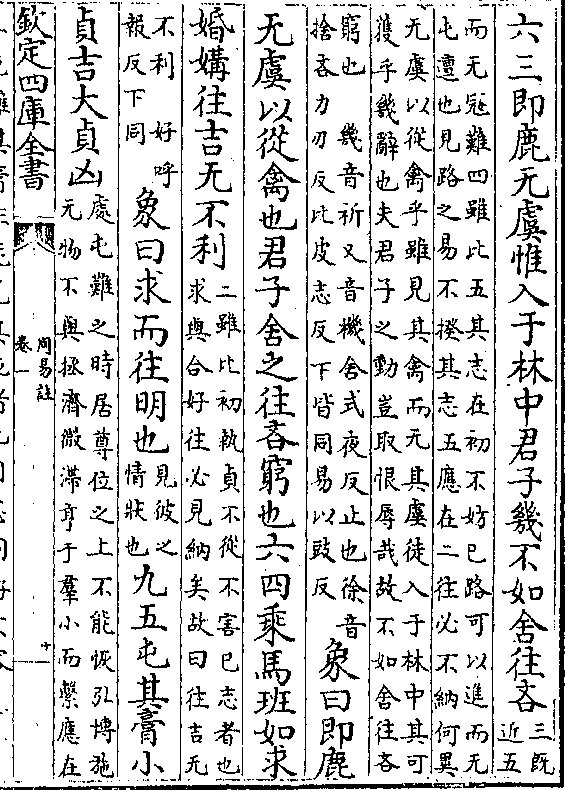 六三即鹿无虞惟入于林中君子幾不如舍往吝三既
近五
而无宼難四雖比五其志在初不妨已路可以進而无
屯邅也見路之易不揆其志五應在二往必不納何異
无虞以從禽乎雖見其禽而无其虞徒入于林中其可
獲乎幾辭也夫君子之動豈取恨辱哉故不如舍往吝
窮也 幾音祈又音機舍式夜反止也徐音
捨吝力刃反比皮志反下皆同易以豉反
象曰即鹿
无虞以從禽也君子舍之往吝窮也六四乘馬班如求
婚媾往吉无不利
二雖比初執貞不從不害已志者也
求與合好往必見納矣故曰往吉无
不利 好呼
報反下同
象曰求而往明也
見彼之
情狀也
九五屯其膏小
貞吉大貞凶
處屯難之時居尊位之上不能恢弘博施
无物不與拯濟微滯亨于羣小而繫應在
欽定四庫全書
周易註
卷一
十